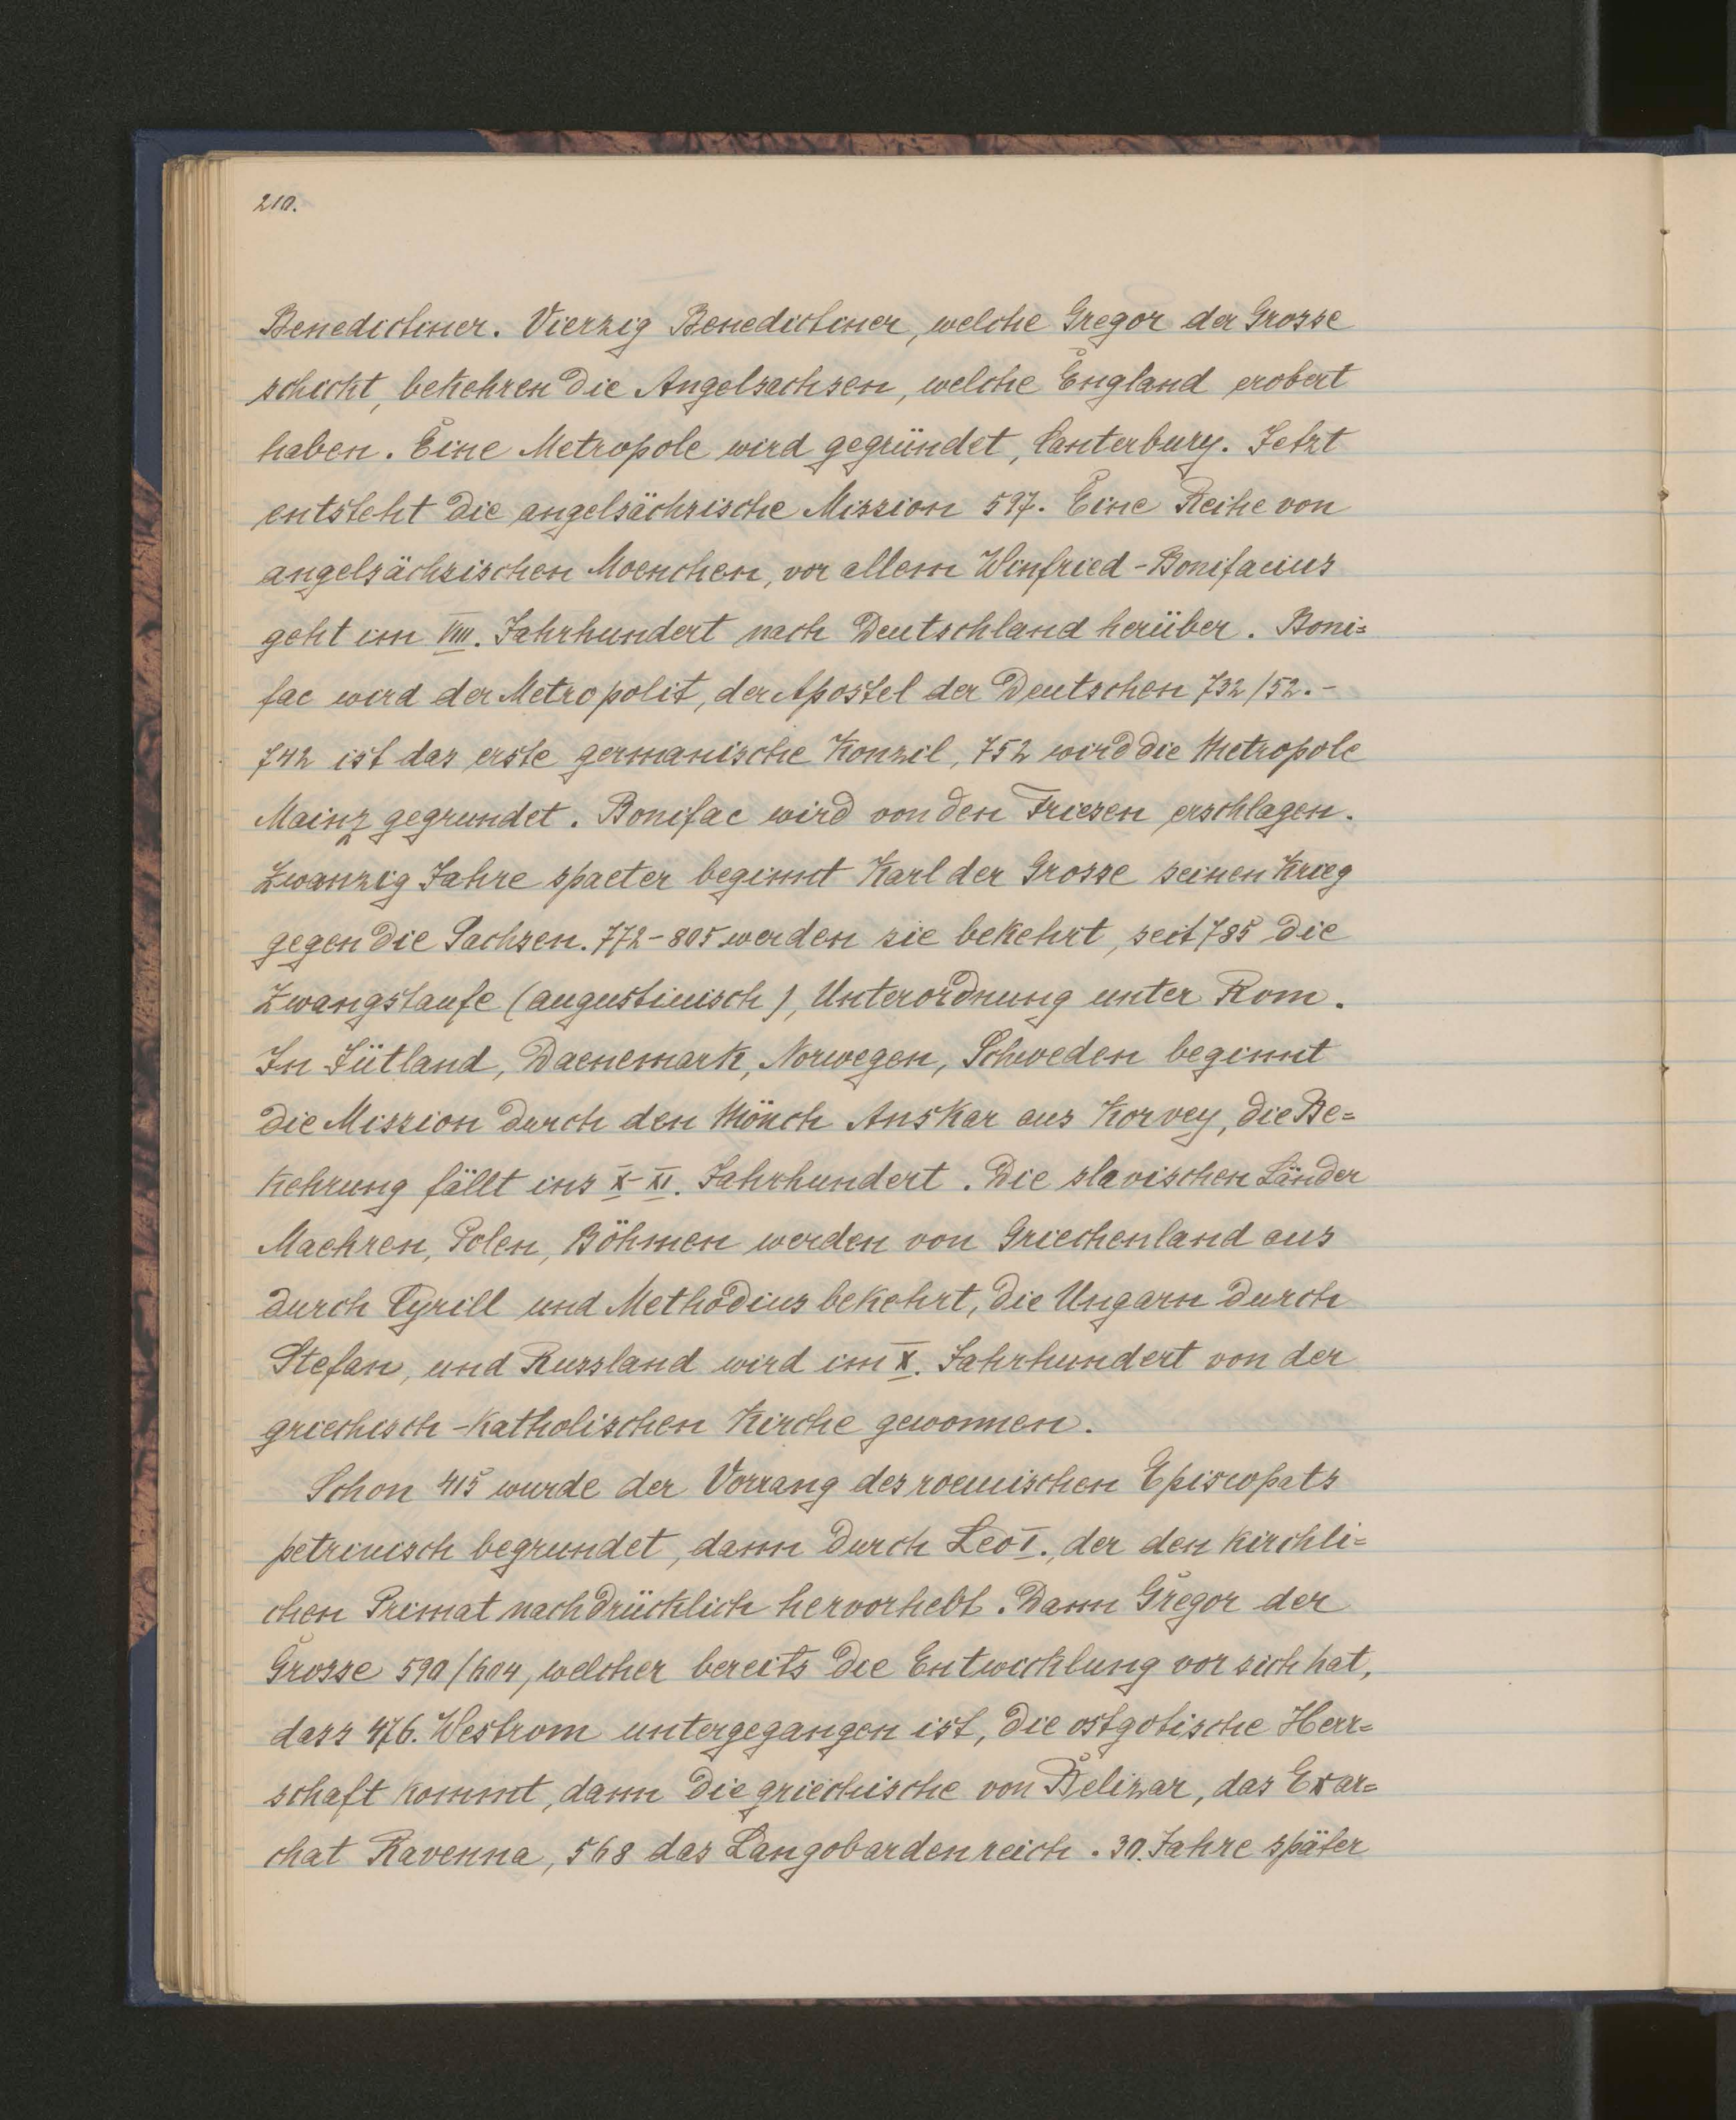 210.
Benedictiner. Vierzig Benedictiner, welche Gregor der Grosse
schickt, bekehren die Angelsachsen, welche England erobert
haben. Eine Metropole wird gegründet, Canterbury. Jetzt
entsteht die angelsächsische Mission 597. Eine Reihe von
angelsächsischen Moenchen, vor allem Winfried-Bonifacius
geht im VIII. Jahrhundert nach Deutschland herüber. Boni=
fac wird der Metropolit, der Apostel der Deutschen 732/52.-
742 ist das erste germanische Konzil, 752 wird die Metropole
Mainz gegrundet. Bonifac wird von den Friesen erschlagen.
Zwanzig Jahre spaeter beginnt Karl der Grosse seinen Krieg
gegen die Sachsen. 772-805 werden sie bekehrt, seit 785 die
Zwangstaufe (augustinisch), Unterordnung unter Rom.
In Jütland, Daenemark, Norwegen, Schweden beginnt
die Mission durch den Mönch Anskar aus Korvey, die Be=
kehrung fällt ins X-XI. Jahrhundert. Die slavischen Länder
Maehren, Polen, Böhmen werden von Griechenland aus
durch Cyrill und Methodius bekehrt, die Ungarn durch
Stefan, und Russland wird im X. Jahrhundert von der
griechisch-katholischen Kirche gewonnen.
Schon 415 wurde der Vorrang des roemischen Episcopats
petrinisch begrundet, dann durch Leo I., der den kirchli=
chen Primat nachdrücklich hervorhebt. Dann Gregor der
Grosse 590/604, welcher bereits die Entwicklung vor sich hat,
dass 476. Westrom untergegangen ist, die ostgotische Herr=
schaft kommt, dann die griechische von Belizar, das Exar=
chat Ravenna, 568 das Langobardenreich. 30. Jahre später